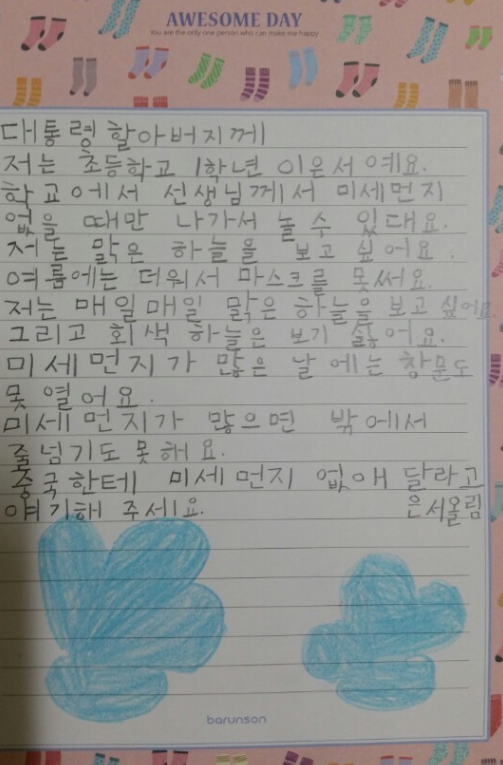 AWESOME DAY
You are the only one person who can make me happy
대통령 할아버지께
저는 초등학교 1학년 이은서예요.
학교에서 선생님께서 미세먼지
없을 때만 나가서 놀 수 있대요.
저는 맑은 하늘을 보고 싶어요.
여름에는 더워서 마스크를 못써요.
저는 매일매일 맑은 하늘을 보고 싶어요.
그리고 회색 하늘은 보기 싫어요.
미세먼지가 많은 날에는 창문도
못 열어요.
미세먼지가 많으면 밖에서
줄넘기도 못해요.
중국한테 미세먼지 없애 달라고
얘기해 주세요. 은서올림
barunson